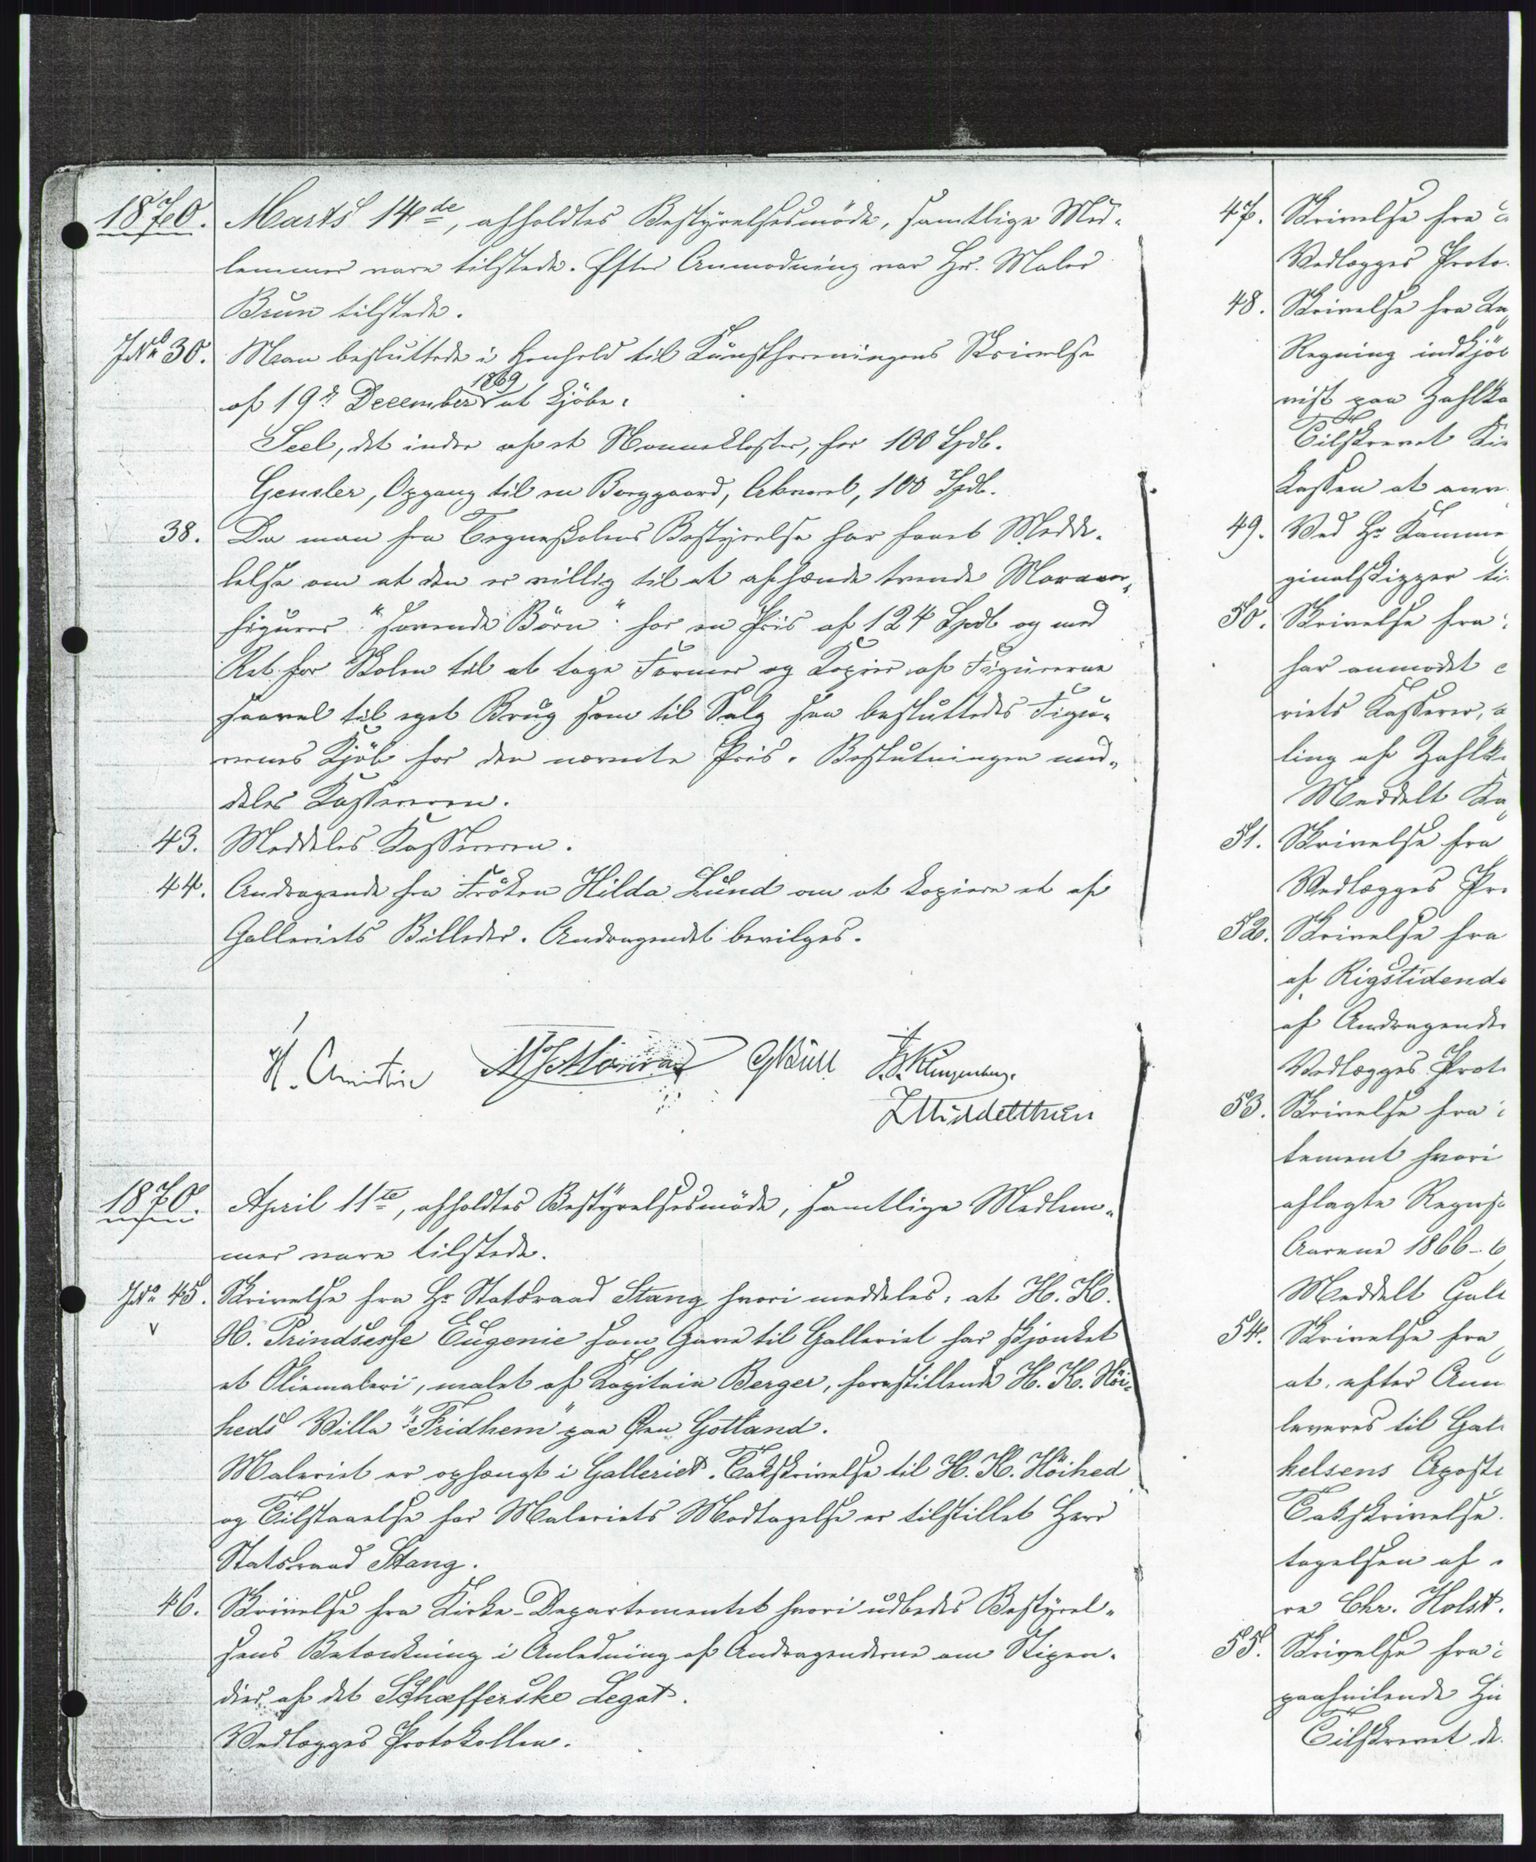 1870. Marts 14de, afholdtes Bestyrelsesmøde, samtlige Med-
lemmer vare tilstede. Efter Anmodning var Hr. Maler
Brun tilstede.
JNo 30. Man besluttede i Henhold til Kunstforeningens Skrivelse
af 19de December 1869 at kjøbe:
Seel, det indre af et Nonnekloster, for 100 Spdl.
Gensler, Opgang til en Borggaard, Akvarel, 100 Spdl.
38. Da man fra Tegneskolens Bestyrelse har faaet Medde-
lelse om at den er villig til at afhænde tvende Marmor-
figurer "sovende Børn" for en Pris af 124 Spdl og med
Ret for Skolen til at tage Former og Kopier af Figurerne
saavel til eget Brug som til Salg saa besluttedes Figu-
rernes Kjøb for den nævnte Pris. Beslutningen med-
deles Kassereren.
43. Meddeles Kassereren.
44. Andragende fra Frøken Hilda Lund om at kopiere et af
Galleriets Billeder. Andragendet bevilges.
H. Christie GBull Klingenberg.
Middelthun
1870. April 11te, afholdtes Bestyrelsesmøde, samtlige Medlem-
mer vare tilstede.
JNo 45. Skrivelse fra Hr Statsraad Stang hvori meddeles, at H. K.
H. Prindsesse Eugenie som Gave til Galleriet har skjenket
et Oliemaleri, malet af Kapitain Berger, forestillende H. K. Høi-
heds Villa "Fridhem" paa Øen Gotland.
Maleriet er ophængt i Galleriet. Takskrivelse til H. K. Høihed
og Tilstaaelse for Maleriets Modtagelse er tilstillet Herr
Statsraad Stang.
46. Skrivelse fra Kirke-Departementet hvori udbedes Bestyrel-
sens Betænkning i Anledning af Andragenderne om Stipen-
dier af det Schæfferske Legat.
Vedlægges Protokollen.
47. Skrivelse fra
Vedlægges Proto-
48. Skrivelse fra
Regning indkjøb
vist paa Zahlka
Tilskrevet
Kassen at anv
49. Ved Hr Kamme
ginalskizzer ti
50. Skrivelse fra
har anmodet
riets Kasserer,
ling af Zahlk
Meddelt Ka
51. Skrivelse fra
Vedlægges Pr
52. Skrivelse fra
af Rigstidende
af Andragende
Vedlægges Prot
53. Skrivelse fra
tement hvori
aflagte Regns
Aarene 1866-6
Meddelt Gall
54. Skrivelse fra
at efter Ann
leveres til Gal
helsens Aposte
Takskrivelse
tagelsen af
re Chr. Holst.
55. Skrivelse fra
paahvilende
Tilskrevet de